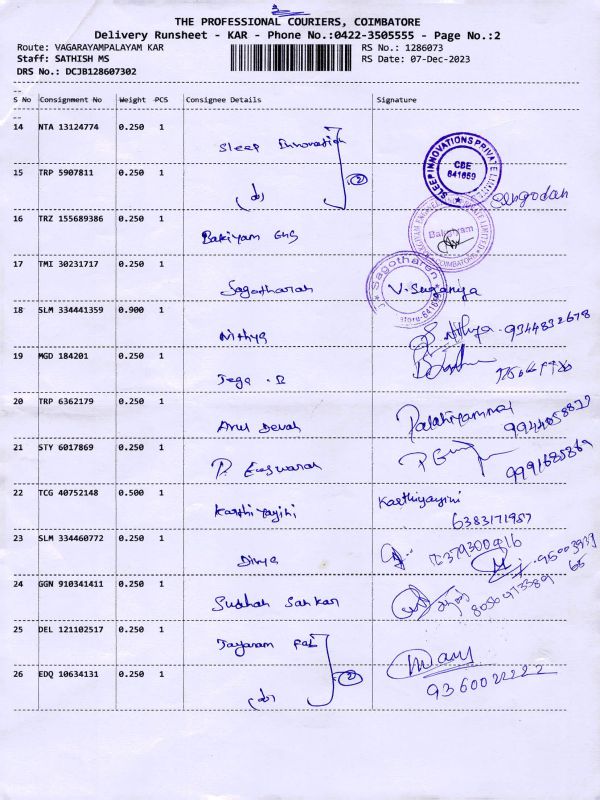 THE PROFESSIONAL COURIERS, COIMBATORE
Delivery Runsheet - KAR - Phone No.:0422-3505555 - Page No.:2
Route: VAGARAYAMPALAYAM KAR RS No.: 1286073
Staff: SATHISH MS RS Date: 07-Dec-2023
DRS No.: DCJB128607302
S No Consignment No Weight PCS Consignee Details Signature
14 NTA 13124774 0.250 1
Sleep Innovation
SLEEP INNOVATIONS PRIVATE LIMITED
CBE
641659
15 TRP 5907811 0.250 1 2
(do) Sengodan
16 TRZ 155689386 0.250 1
Bakiyam Eng
Bakiyam
COIMBATORE
17 TMI 30231717 0.250 1
Sagotharan V. Suganya
Sagotharan
18 SLM 334441359 0.900 1
Nithya Nithya 9344832678
19 MGD 184201 0.250 1
Jega
20 TRP 6362179 0.250 1
Arul Devah Palaniyammal
21 STY 6017869 0.250 1
P. Easwarah
22 TCG 40752148 0.500 1
Karthiyayini Karthiyayini
6383171957
23 SLM 334460772 0.250 1
Divya
24 GGN 910341411 0.250 1
Sudhah Sankar
25 DEL 121102517 0.250 1
Jayaram
26 EDQ 10634131 0.250 1 2
(do) 9360022222